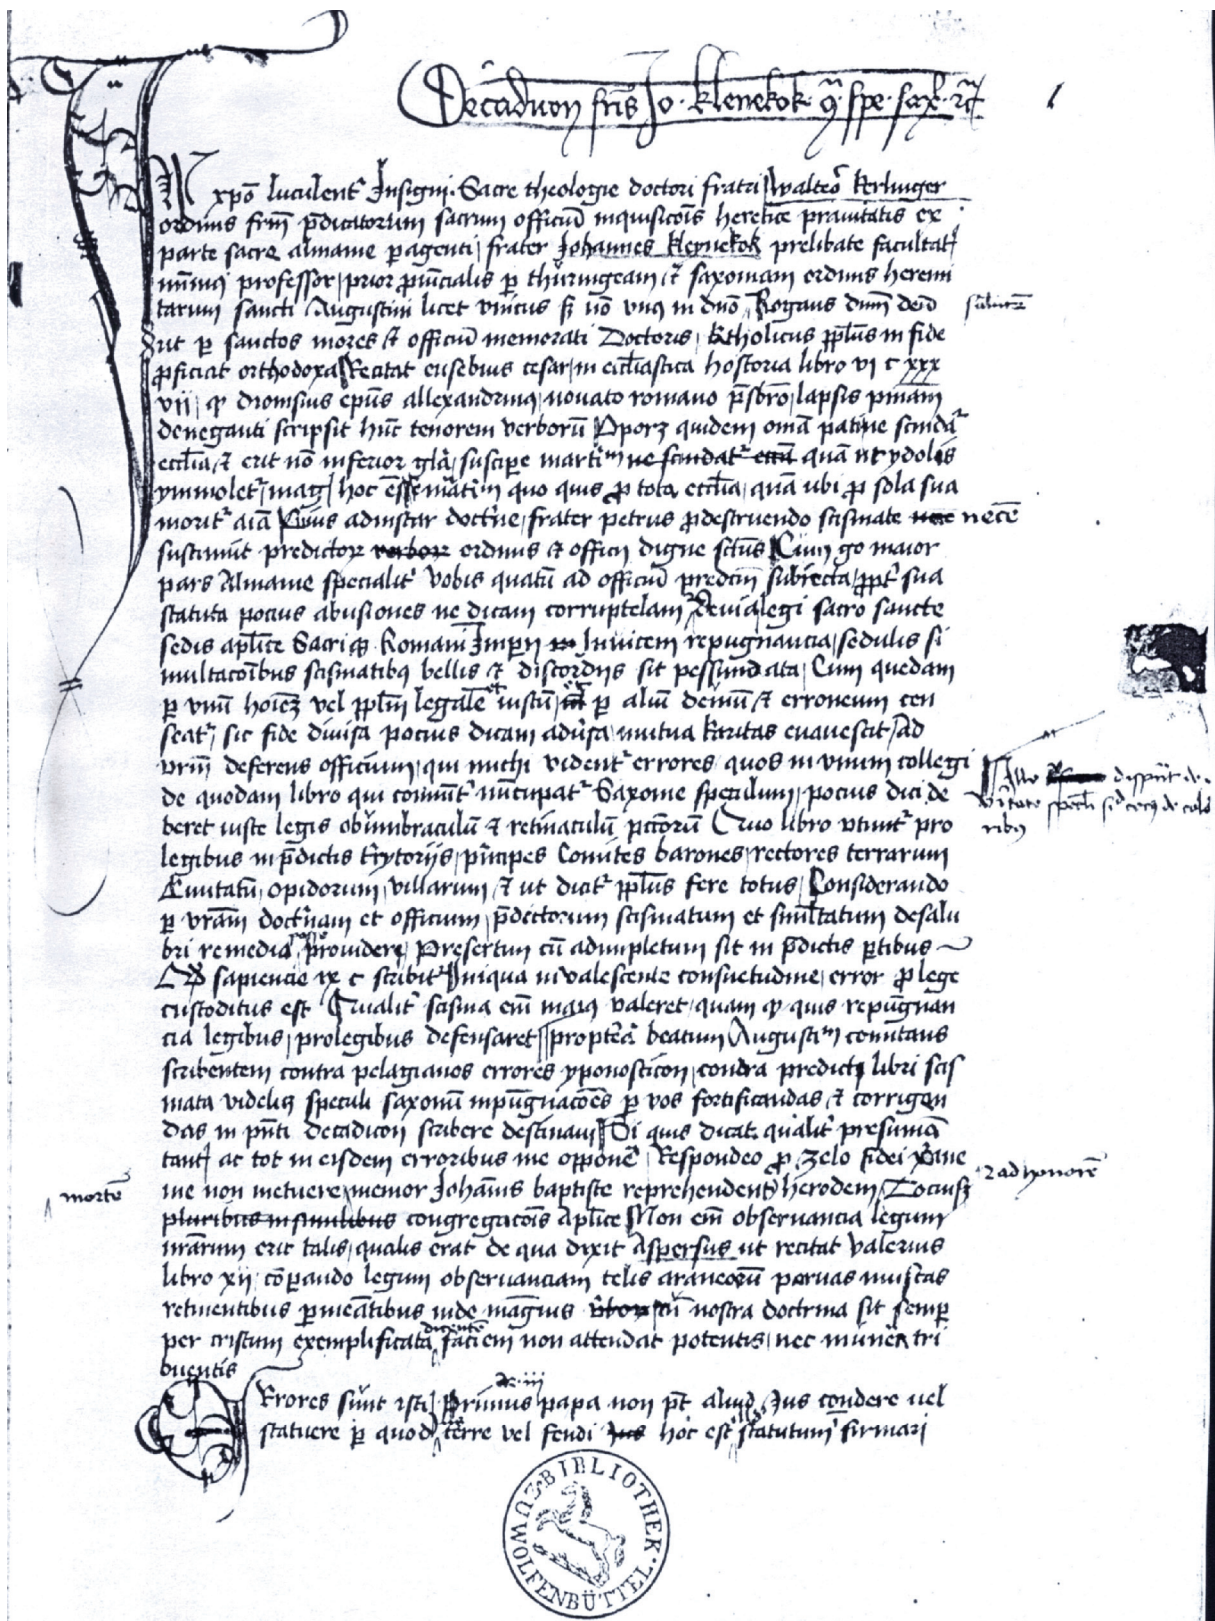 Decadicon fris Jo. klenekok. 9͂ spe. sax. rc͂
In xpo luculent' Insigni. Sacre theologie doctori fratri waltero kerlinger
ordinis frm p̄dicatorum sacrum officiū inquisicōis heretice prauitatis ex
parte sacre almanie peragenti frater Johannes kleynekok prelibate facultat'
minim9 professor prior ꝓuīcialis per thuringeam et saxoniam ordinis heremi
tarum sancti Augustini licet vnicus s; nō vnus in dnō Rogans dnm deū
salutē
vt per sanctos mores et officiū memorati Doctoris katholicus pplus in fide
ꝓficiat orthodoxa Recitat eusebius cesar in ecclīastica historia libro vi c xxx
vii q dionisius ep̄us allexandrin9 nouato romano p̄sbrō lapsis pniam
deneganti scripsit hūc tenorem verborū Oporꝫ quidem omīa patı ne scindat'
ecclīa et erit nō inferior glā suscipere martirm ne scindat' eccīa quā ne ydolis
ymmolet' mag' hoc esse martirm quo quis ꝓ tota ecclīa quā ubi ꝓ sola sua
morit' aīa Cuius adinstar doctrine frater petrus ꝓ destruendo scismate necē
sustinuit predictoꝝ verboꝝ ordinis et officij digne sctūs Cum go maior
pars Almanie specialit' vobis quatū ad officiū predcm subiecta ꝓpt' sua
statuta pocius abusiones ne dicam corruptelam deuia legi sacro sancte
sedis apl̄ice Sacriq; Romani Imperij Inuicem repugnancia sedulis si
multacōibus scismatib9 bellis et discordijs sit pessundata Cum quedam
per vnū hoīeꝫ vel pplm legale et iustū per aliū demū et erroneum cen
seat' sic fide diuisa pocius dicam aduersa mutua karitas euanescit Ad
vrm deferens officium qui michi vident' errores quos in vnum collegi
de quodam libro qui comūit' nūcupat' Saxonie speculum pocius dici de
beret iuste legis obumbraculū et retinaculū pctōrum Quo libro vtunt' pro
legibus in p̄dictis t'rytorijs principes Comites barones rectores terrarum
Ciuitatū opidorum villarum et ut dicit' pplus fere totus Considerando
per vram doctrinam et officium p̄dictorum scismatum et simultatum de salu
bri remedia prouidere Presertim cū adimpletum sit in p̄dictis partibus
Qd sapiencie ix c scribit' Iniqua inualescente consuetudine error ꝓ lege
custoditus est Qualit' scisma em maius valeret quam q quis repugnan
cia legibus pro legibus defensaret propterea beatum Augustinm comitans
scribentem contra pelagianos errores yponosticon contra predicti libri scis
mata videlicꝫ speculi saxonū inpugnacōes per vos fortificandas et corrigen
das in pn̄ti decadicon scribere destinaui Si quis dicat qualit' presumā
tant' ac tot in eisdem erroribus me opponē Respondeo ꝓ zelo fidei xpiane
et ad honorē
mortē
me non metuere memor Johānis baptiste reprehendentis herodem Tociusꝫ
pluribus in similibus congregacōis apl̄ice Non em observancia legum
nrārum erit talis qualis erat de qua dixit Aspersus ut recitat Valerius
libro xij cōparando legum obseruanciam telis araneorū paruas muscas
retinentibus permeātibus inde magnis cū nostra doctrina sit semper
per cristum exemplificata dicentē faciem non attendat potentis nec munera tri
buentis
Errores sunt isti Primus ar. iij papa non pt aliud Jus condere vel
statuere per quod terre vel feudi Jus hoc est statutum firmari
BIBLIOTHEK ZU WOLFENBÜTTEL